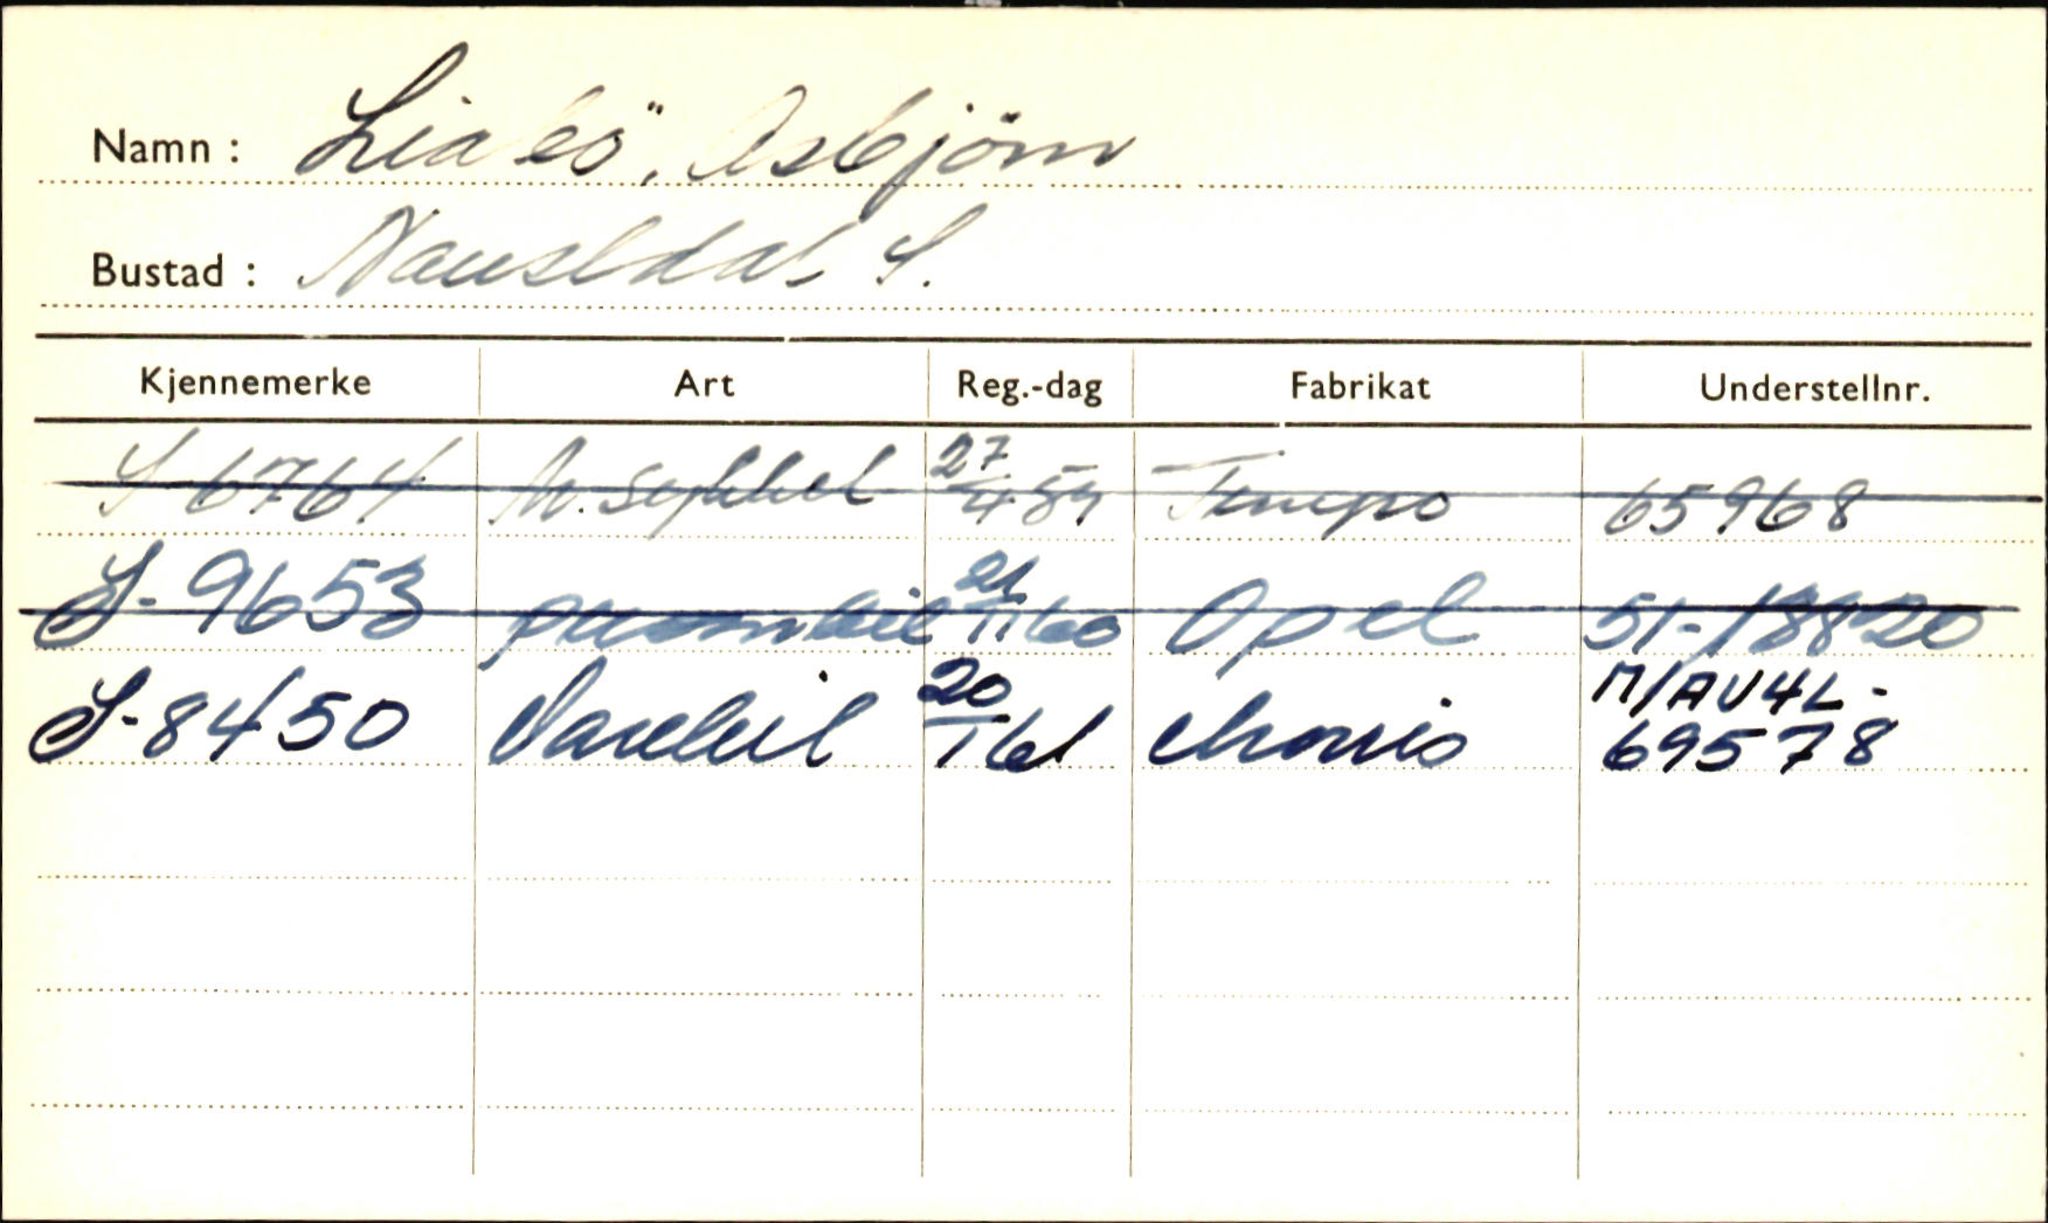 Namn : Liabö, Asbjörn
Bustad : Naustdal S.
Kjennemerke Art Reg.-dag Fabrikat Understellnr.
S 6764 M.sykkel 27/4 59 Tempo 65968
S-9653 personbil 21/11 60 Opel 51-18820
S-8450 Varebil 20/1 61 Morris M/AU4L-
69578